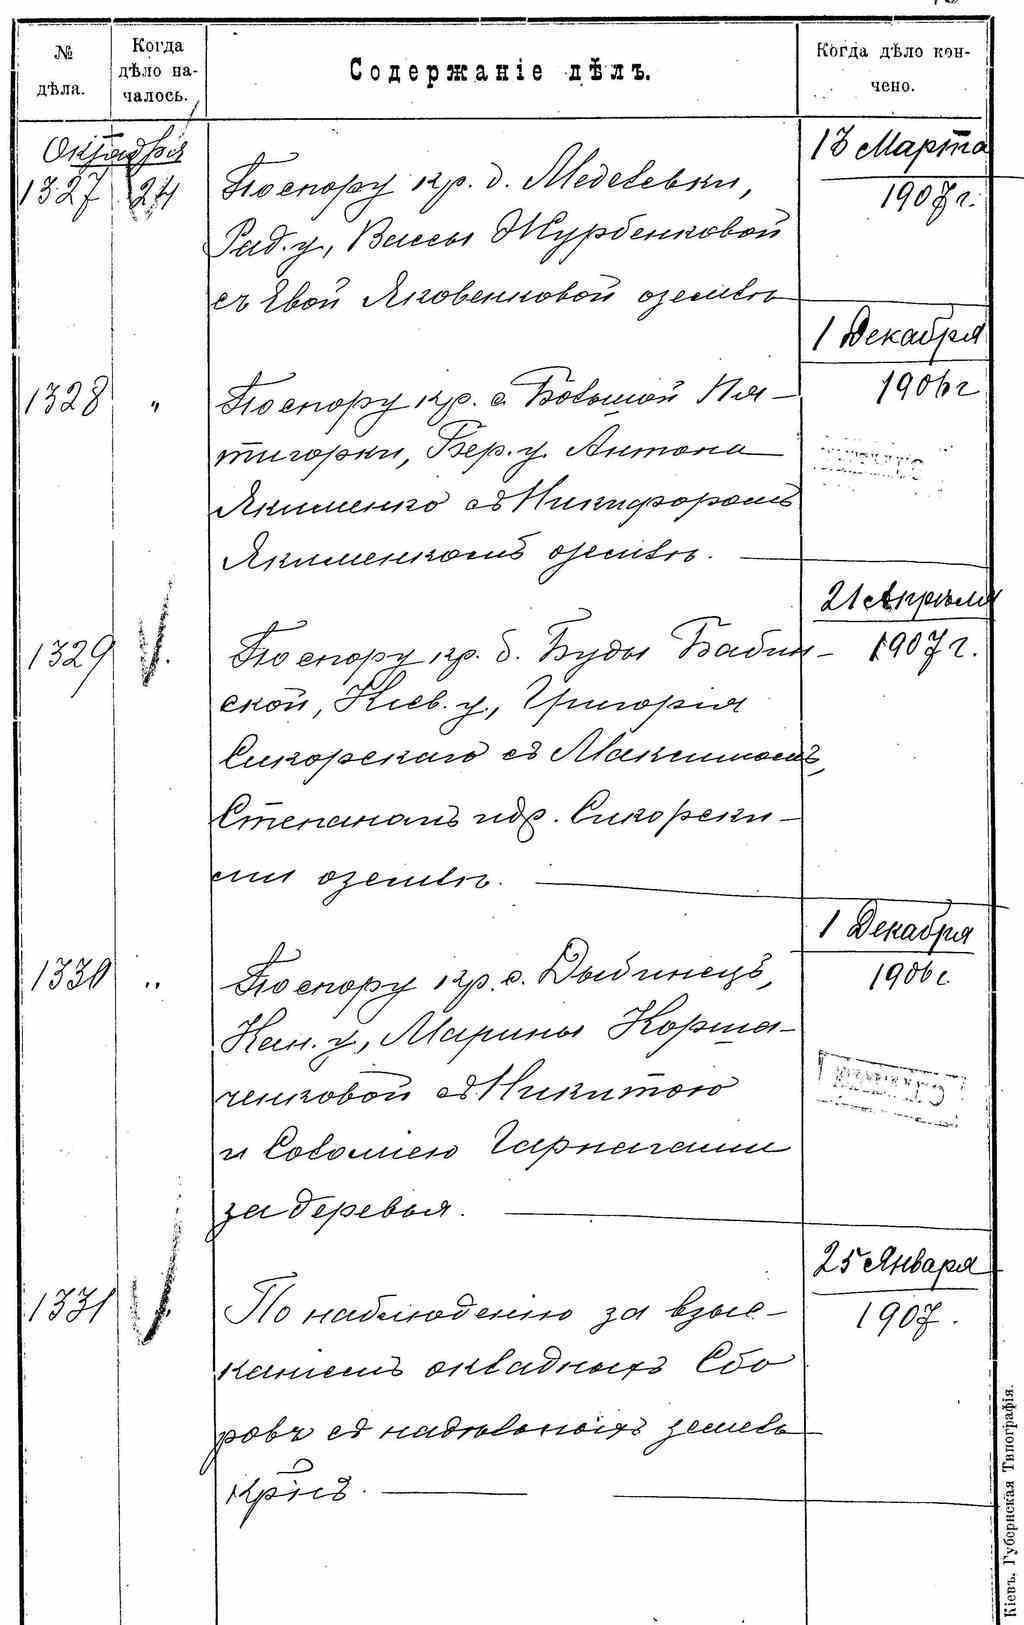 № дѣла.
Когда дѣло на-
чалось.
Содержаніе дѣлъ.
Когда дѣло кон-
чено.
Октября
1327 24
По спору кр. д. Медвѣвки,
Рад. у., Вассы Журбенковой
съ Евой Яковенковой о землѣ
13 Марта
1907 г.
1328 "
По спору кр. с. Большой Пя-
тигорки, Бер. у. Антона
Якименко съ Никифоромъ
Якименкомъ о землѣ.
1 Декабря
1906 г
1329
По спору кр. д. Буды Бабин-
ской, Кіев. у., Григорія
Сикорскаго съ Максимомъ,
Степаномъ и др. Сикорски-
ми о землѣ.
21 Апрѣля
1907 г.
1330 "
По спору кр. с. Дыбинецъ,
Кан. у., Марины Корша-
ченковой съ Никитою
и Соломіею Гарначами
за деревья.
1 Декабря
1906 г.
1331
По наблюденію за взыс-
каніемъ окладныхъ сбо
ровъ съ надѣльныхъ земель
крнъ.
25 Января
1907.
Кіевъ, Губернская Типографія.